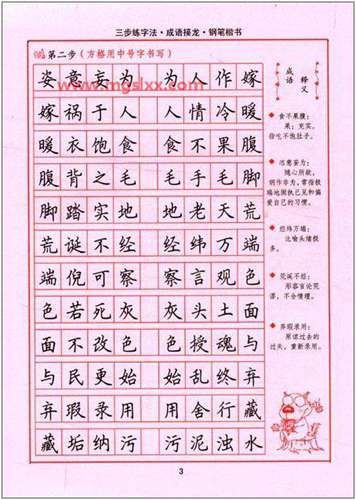 三步练字法·成语接龙·钢笔楷书
第二步(方格用中号字书写)
www.mgslxx.com
姿意妄为 为人作嫁
嫁祸于人 人情冷暖
暖衣饱食 食不果腹
腹背之毛 毛手毛脚
脚踏实地 地老天荒
荒诞不经 经纬万端
端倪可察 察言观色
色若死灰 灰头土面
面不改色 色授魂与
与民更始 始乱终弃
弃瑕录用 用舍行藏
藏垢纳污 污泥浊水
成语释义
食不果腹:
果:充实。
指吃不饱肚子。
恣意妄为:
随心所欲,
胡作非为。常指极
端地固执己见和偏
爱自己的习惯。
经纬万端:
比喻头绪极
多。
荒诞不经:
形容言论荒
谬,不合情理。
弃瑕录用:
原谅过去的
过失,重新录用。
3